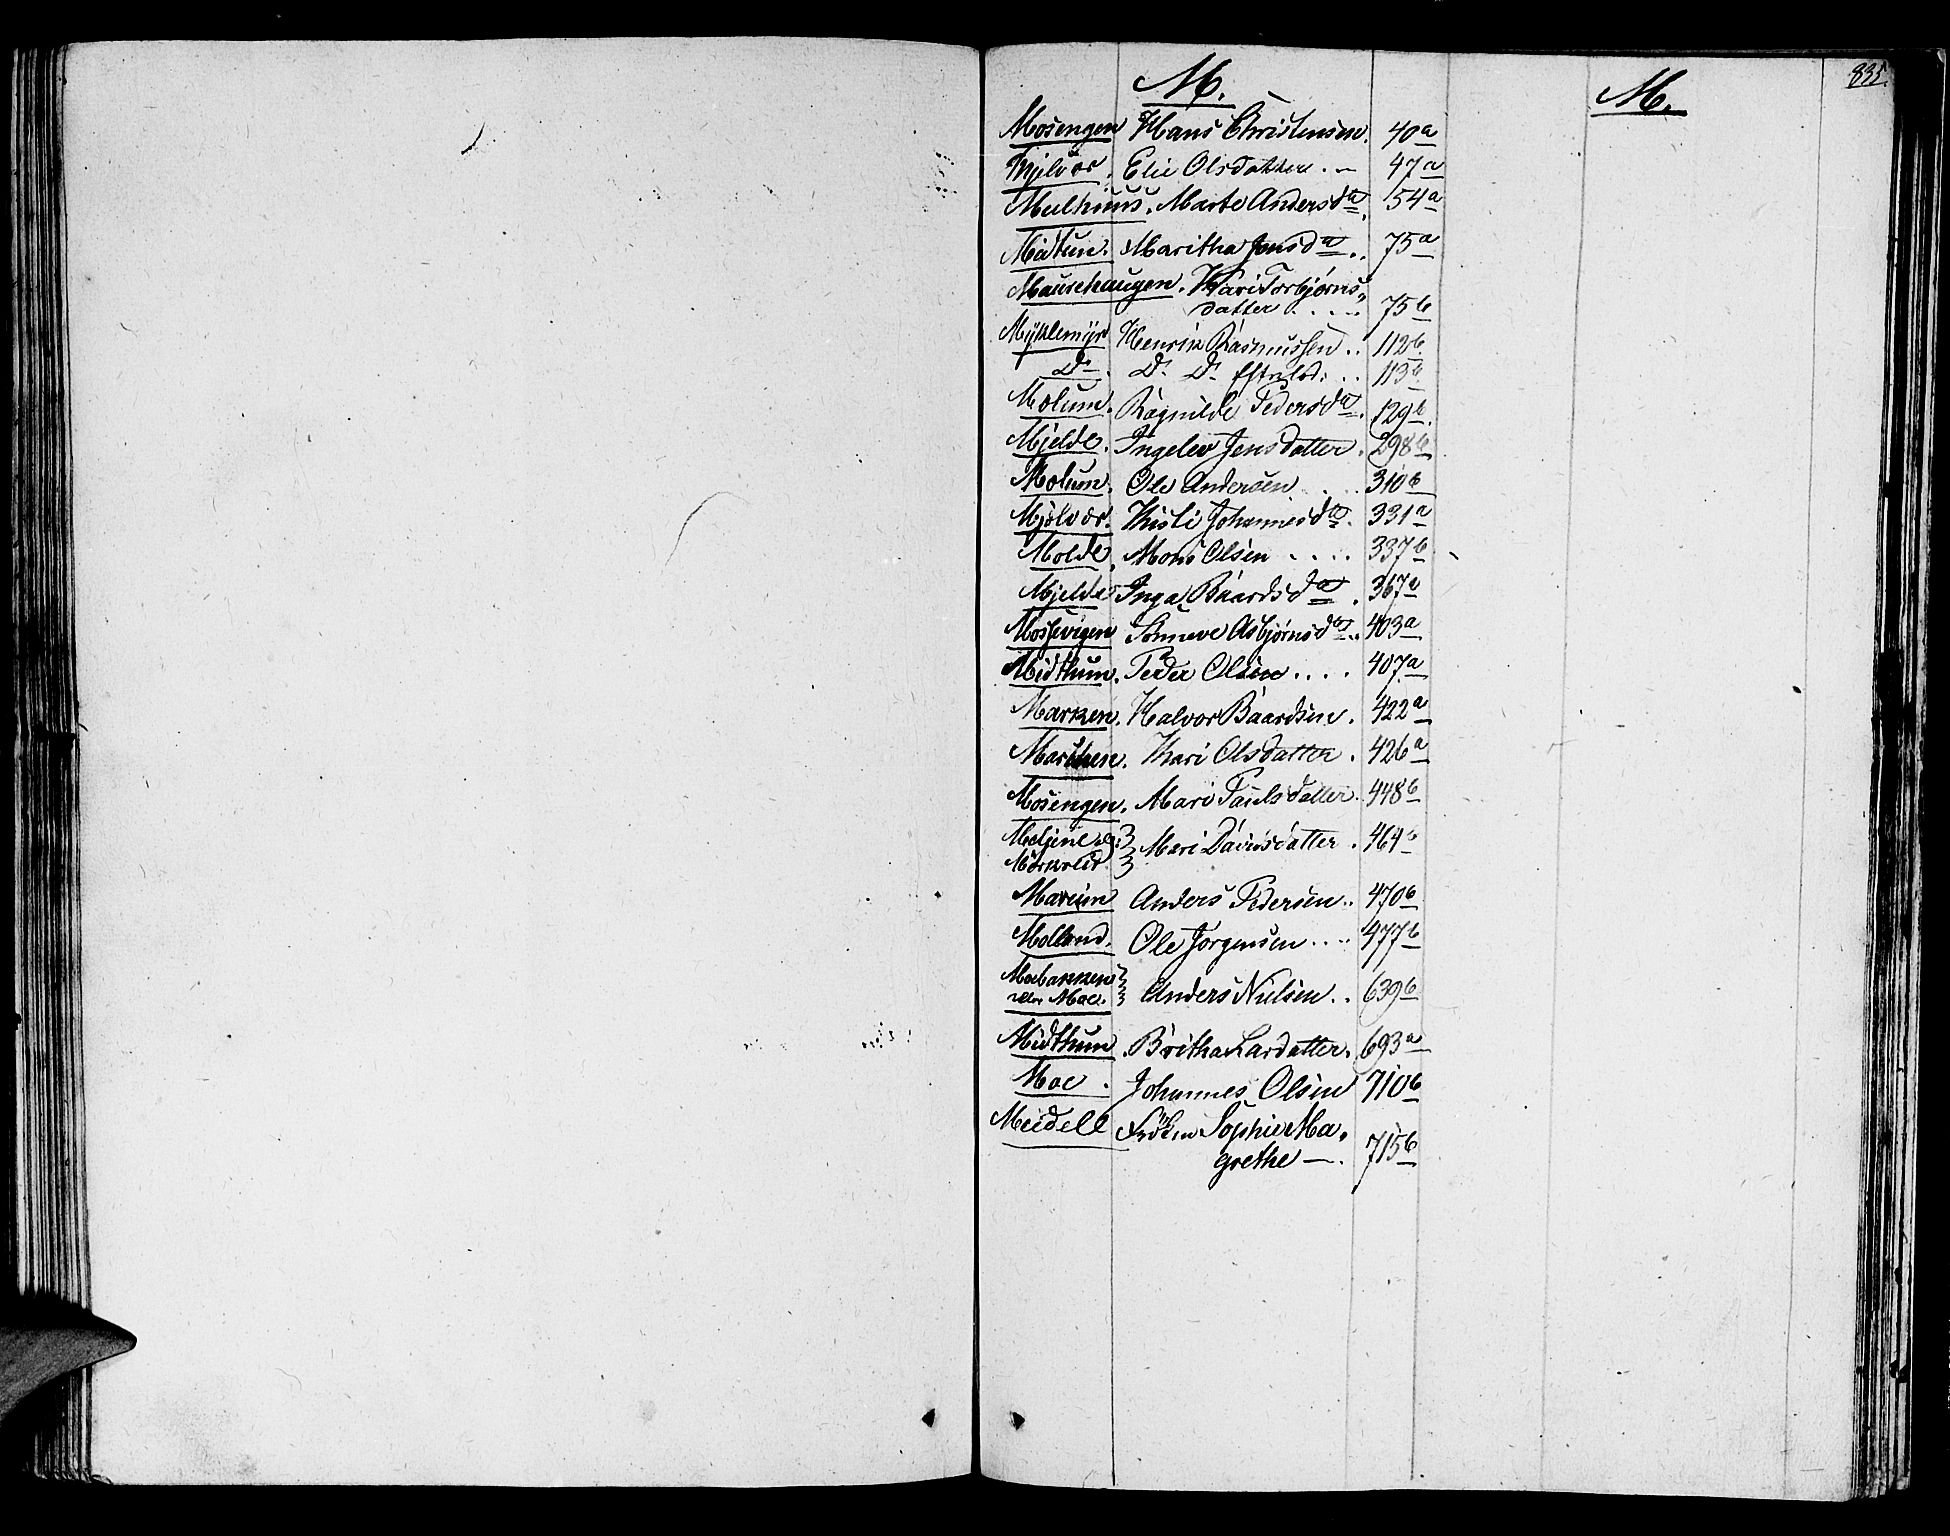 835.
M. M.
Mosengen Hans Christensen. 40a
Mjelvær. Elie Olsdatter. 47a
Melhuus. Marte Andersda. 54a
Midtun. Maritha Jonsda.. 75a
Maurehaugen. Kari Torbjørns„
datter .... 75b
Myklemyr Henrik Rasmussen .. 112b.
Do. Do. Do. .. 113b
Molum. Ragnilde Pedersda. 129b.
Mjelde. Ingelev Jensdatter. 298b
Molum. Ole Andersen .... 310b
Mjølvær. Kisti Johannesda. 331a
Molde. Mons Olsen .... 337b
Mjelde Inga Baardsda. 367a
Mossevigen Sønneve Asbjørnsda.. 403a
Midthun. Peder Olsen .... 407a
Marken. Halvor Baardsen. 422a
Marken. Kari Olsdatter. 426a
Mosengen. Mari Paulsdatter. 448b
Mørkrid Mari Davidsdatter. 464b
Marium Anders Pedersen.. 470b
Molland. Ole Jørgensen .... 477b
Moebakken
eller Moe. Anders Nielsen.. 639b
Midthun. Britha Larsdatter. 693a
Moe. Johannes Olsen 710b
Meidell Frøken Sophie Ma„
grethe —. 715b